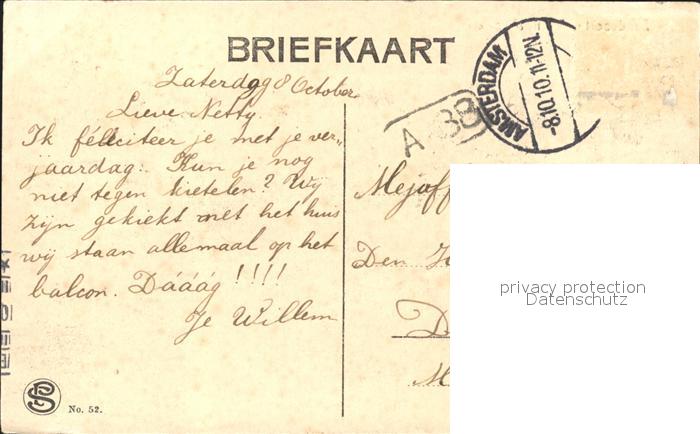 BRIEFKAART
Zaterdag 8 October
Lieve Netty.
Ik féliciteer je met je ver„
jaardag. Kun je nog
niet tegen kietelen? Wij
zijn gekiekt met het huis
wij staan allemaal op het
balcon. Dááág !!!!
Je Willem
AMSTERDAM
-8.10.10.11-12N.
A 38
Mejuff
Den
privacy protection
Datenschutz
No. 52.